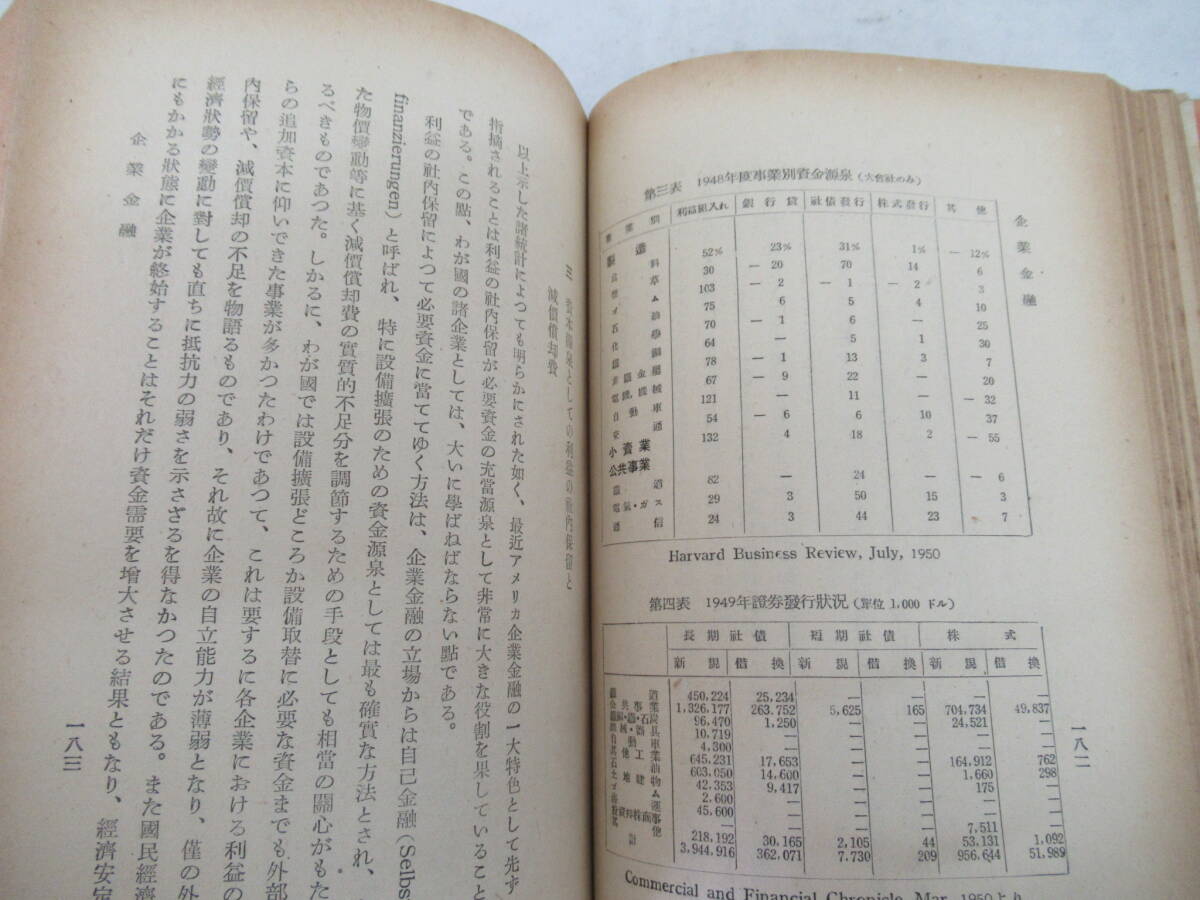 企業金融
第三表 1948年度事業別資金源泉(大會社のみ)
業種別 利益組入れ 銀行貸 社債發行 株式發行 其他
製造
52% 23% 31% 1% — 12%
30 — 20 70 14 6
103 — 2 — 1 — 2 3
75 6 5 4 10
70 — 1 6 — 25
64 — 5 1 30
78 — 1 13 3 7
67 — 9 22 — 20
121 — 11 — — 32
54 — 6 6 10 37
132 4 18 2 — 55
小賣業
公共事業
82 — 24 — — 6
電氣・ガス 29 3 50 15 3
通信 24 3 44 23 7
Harvard Business Review, July, 1950
第四表 1949年證券發行狀況(單位 1,000 ドル)
長期社債 短期社債 株式
新規 借換 新規 借換 新規 借換
鐵道 450,224 25,234 — — — —
公共事業 1,326,177 263,752 5,625 165 704,734 49,837
96,470 1,250 — — 24,521 —
10,719 — — — — —
4,300 — — — — —
645,231 17,653 — — 164,912 762
603,050 14,600 — — 1,660 298
42,353 9,417 — — 175 —
2,600 — — — — —
45,600 — — — — —
— — — — 7,511 —
218,192 30,165 2,105 44 53,131 1,092
計 3,944,916 362,071 7,730 209 956,644 51,989
Commercial and Financial Chronicle, Mar. 1950より
一八二
三 資本源泉としての利益の社內保留と
減價償却費
以上示した諸統計によつても明らかにされた如く、最近アメリカ企業金融の一大特色として先ず
指摘されることは利益の社內保留が必要資金の充當源泉として非常に大きな役割を果していること
である。この點、わが國の諸企業としては、大いに學ばねばならない點である。
利益の社內保留によつて必要資金に當ててゆく方法は、企業金融の立場からは自己金融(Selbs
finanzierungen)と呼ばれ、特に設備擴張のための資金源泉としては最も確實な方法とされ、
た物價變動等に基く減價償却費の實質的不足分を調節するための手段としても相當の關心がもた
るべきものであつた。しかるに、わが國では設備擴張どころか設備取替に必要な資金までも外部
らの追加資本に仰いできた事業が多かつたわけであつて、これは要するに各企業における利益の
內保留や、減價償却の不足を物語るものであり、それ故に企業の自立能力が薄弱となり、僅の外
經濟狀勢の變動に對しても直ちに抵抗力の弱さを示さざるを得なかつたのである。また國民經濟
にもかかる狀態に企業が終始することはそれだけ資金需要を增大させる結果ともなり、經濟安定
企業金融
一八三